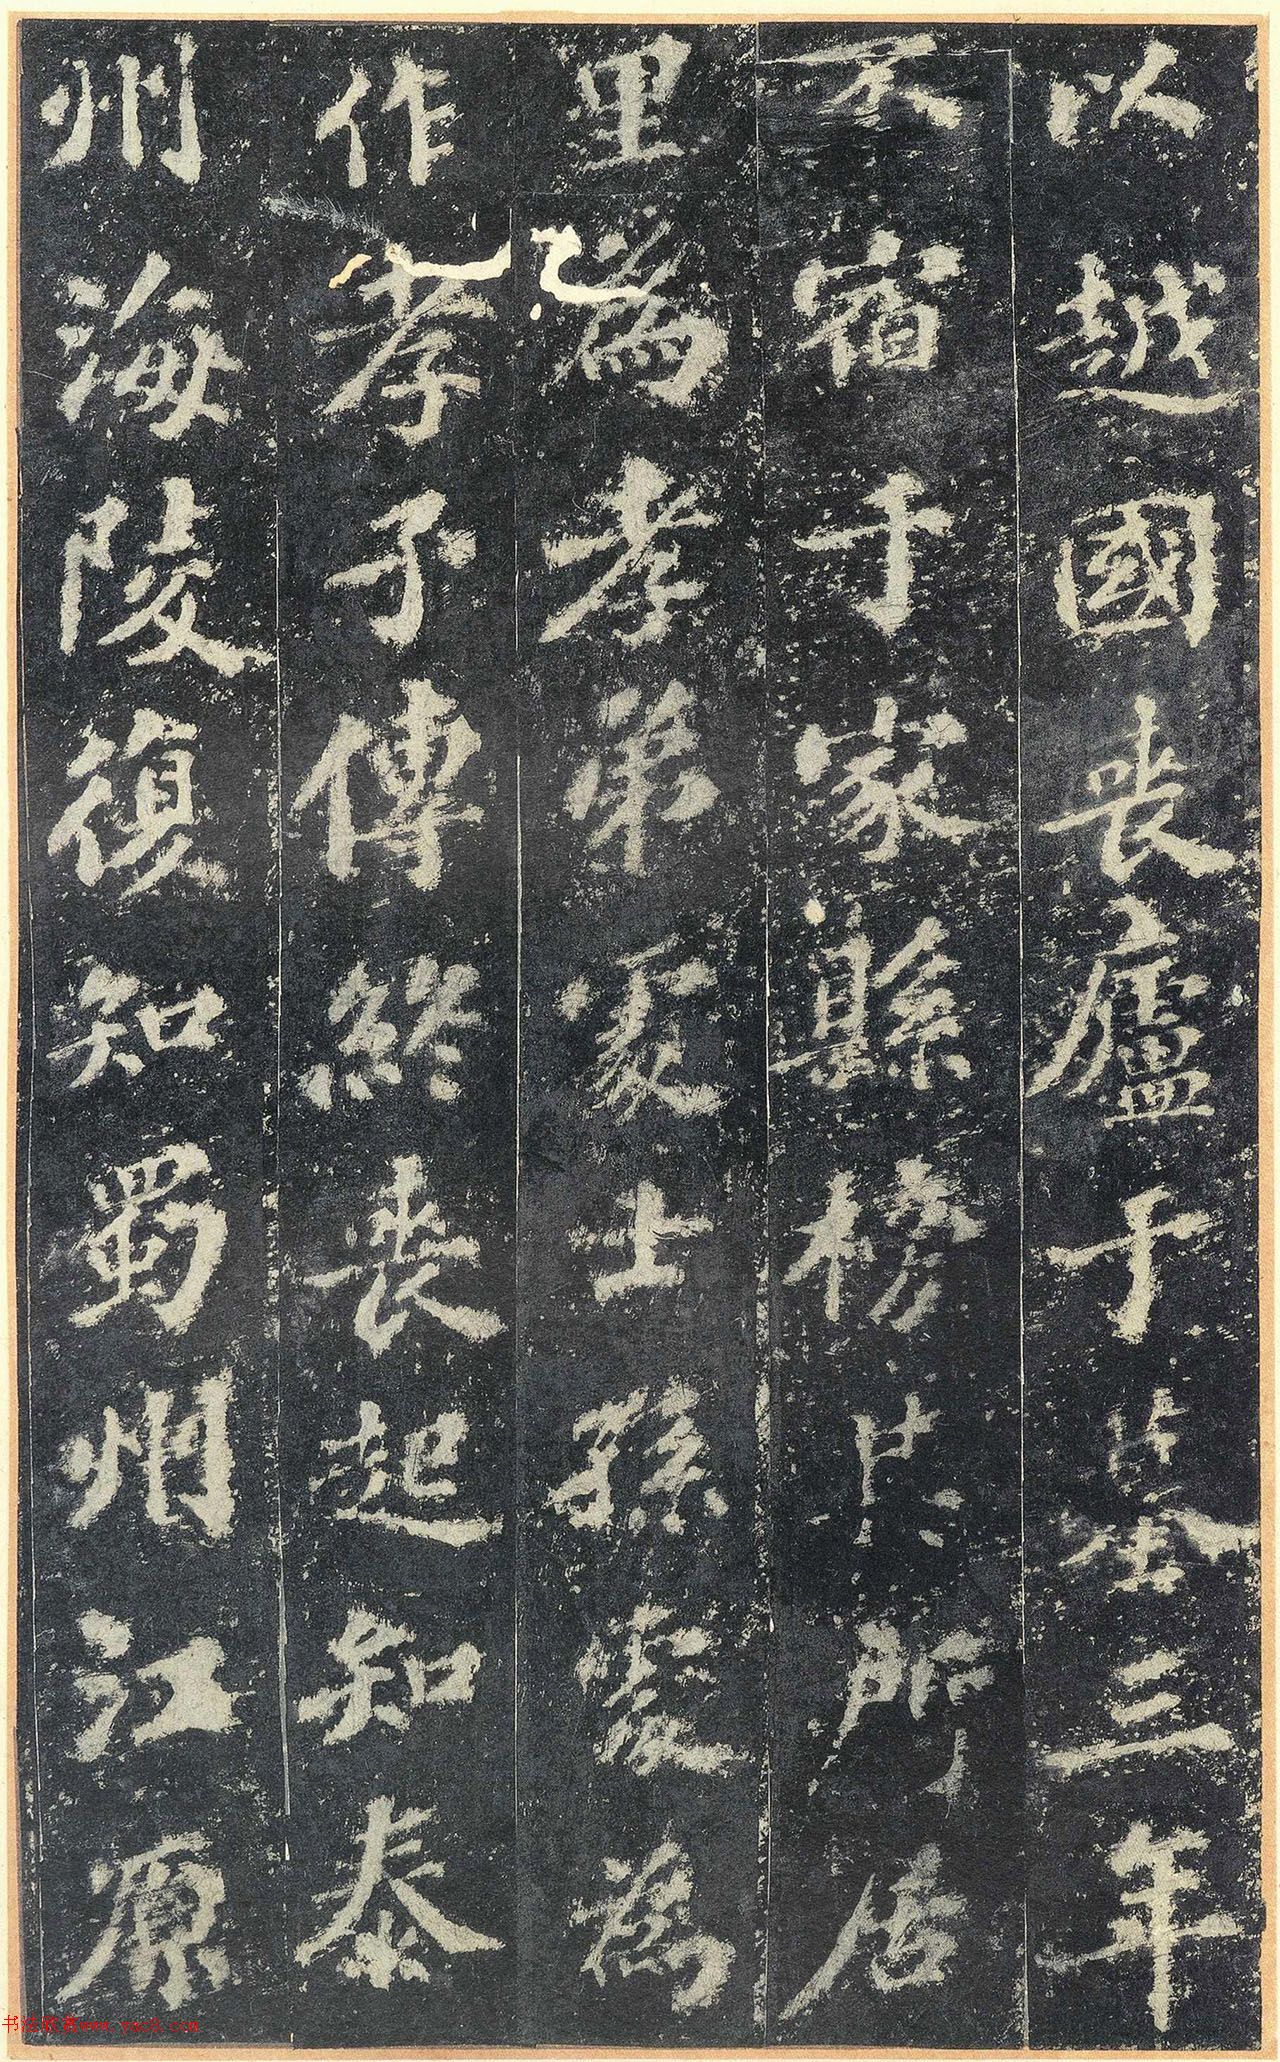 以越國喪廬于墓三年
不宿于家縣榜其所居
里為孝弟處士孫處為
作孝子傳終喪起知泰
州海陵復知蜀州江原
书法教育www.yac8.com